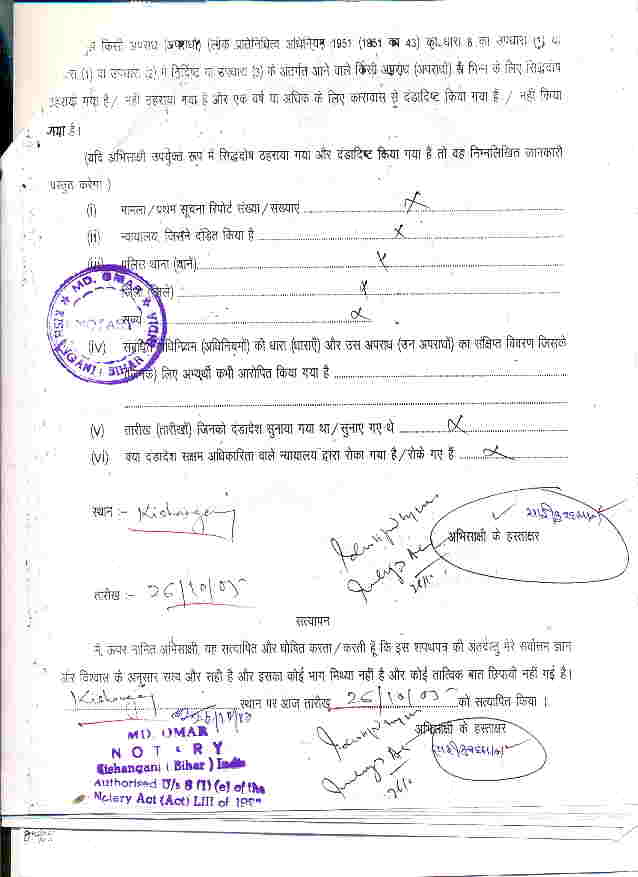 किसी अपराध (अपराधों) (लोक प्रतिनिधित्व अधिनियम 1951 (1951 का 43) की धारा 8 की उपधारा (1) या
धारा (1) या उपधारा (2) में निर्दिष्ट या उपधारा (3) के अंतर्गत आने वाले किसी अपराध (अपराधों) से भिन्न के लिए सिद्धदोष
ठहराया गया है / नहीं ठहराया गया है और एक वर्ष या अधिक के लिए कारावास से दंडादिष्ट किया गया है / नहीं किया
गया है।
(यदि अभिसाक्षी उपर्युक्त रूप में सिद्धदोष ठहराया गया और दंडादिष्ट किया गया है तो वह निम्नलिखित जानकारी
प्रस्तुत करेगा )
(i) मामला / प्रथम सूचना रिपोर्ट संख्या / संख्याएं X
(ii) न्यायालय, जिसने दंडित किया है X
(iii) पुलिस थाना (थाने) X
जिला (जिले) X
राज्य X
(iv) संबंधित अधिनियम (अधिनियमों) की धारा (धाराएँ) और उस अपराध (उन अपराधों) का संक्षिप्त विवरण जिसके
लिए अभ्यर्थी कभी आरोपित किया गया है
(v) तारीख (तारीखों) जिनको दंडादेश सुनाया गया था / सुनाए गए थे X
(vi) क्या दंडादेश सक्षम अधिकारिता वाले न्यायालय द्वारा रोका गया है / रोके गए हैं X
MD. OMAR
NOTARY
INDIA
KISHANGANJ (BIHAR)
स्थान :- Kishanganj
अभिसाक्षी के हस्ताक्षर
तारीख :- 26/10/05
सत्यापन
मैं, ऊपर नामित अभिसाक्षी, यह सत्यापित और घोषित करता / करती हूँ कि इस शपथपत्र की अंतर्वस्तु मेरे सर्वोत्तम ज्ञान
और विश्वास के अनुसार सत्य और सही है और इसका कोई भाग मिथ्या नहीं है और कोई तात्विक बात छिपायी नहीं गई है।
Kishanganj स्थान पर आज तारीख 26/10/05 को सत्यापित किया ।
अभिसाक्षी के हस्ताक्षर
MD. OMAR
NOTARY
Kishanganj (Bihar) India
Authorised U/s 8 (1) (e) of the
Notery Act (Act) LIII of